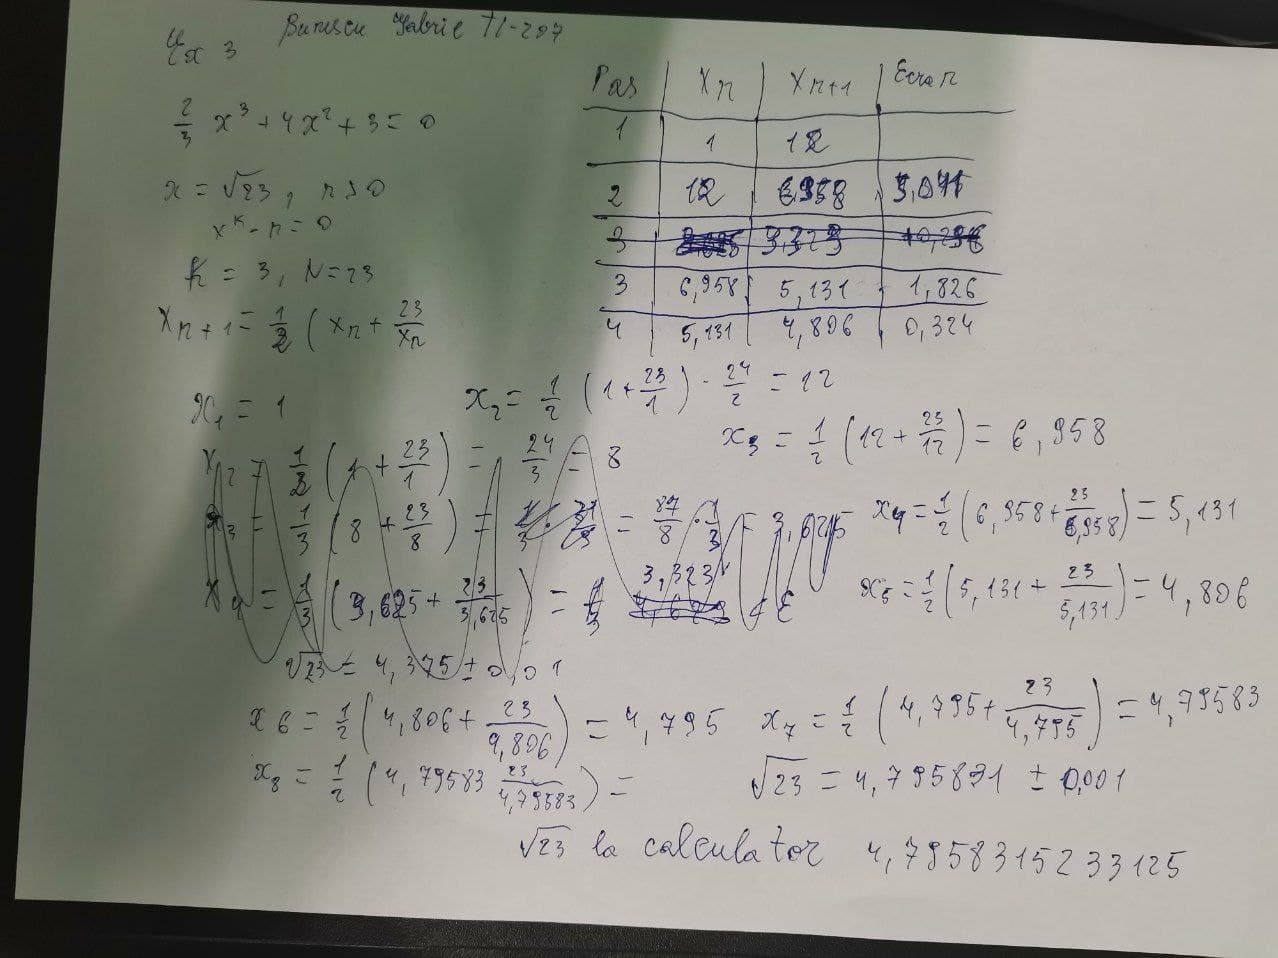 Ex 3
TI-207
2/3 x³ + 4x² + 3 = 0
x = √23, n > 0
x^k - n = 0
k = 3, N = 23
x_{n+1} = 1/2 ( x_n + 23/x_n
Pas | x_n | x_{n+1} |
1 | 1 | 12 |
2 | 12 | 6,958 | 5,041
3 | | 3,323 |
3 | 6,958 | 5,131 | 1,826
4 | 5,131 | 4,806 | 0,324
x_1 = 1
x_2 = 1/2 ( 1 + 23/1 ) · 24/2 = 12
x_3 = 1/2 ( 12 + 23/12 ) = 6,958
x_2 = 1/3 ( 1 + 23/1 ) = 24/3 = 8
x_3 = 1/3 ( 8 + 23/8 ) = = 87/8 · 1/3 = 3,625
x_4 = 1/2 ( 6,958 + 23/6,958 ) = 5,131
x_4 = 1/3 ( 3,625 + 23/3,625 ) = 3,323
x_5 = 1/2 ( 5,131 + 23/5,131 ) = 4,806
√23 = 4,375 ± 0,01
x6 = 1/2 ( 4,806 + 23/9,806 ) = 4,795
x_7 = 1/2 ( 4,795 + 23/4,795 ) = 4,79583
x_8 = 1/2 ( 4,79583 23/4,79583 ) =
√23 = 4,795831 ± 0,001
√23 la calculator 4,7958315233125